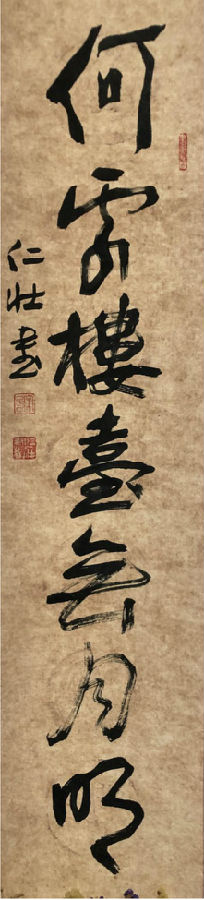 何處樓臺無月明
仁壯書